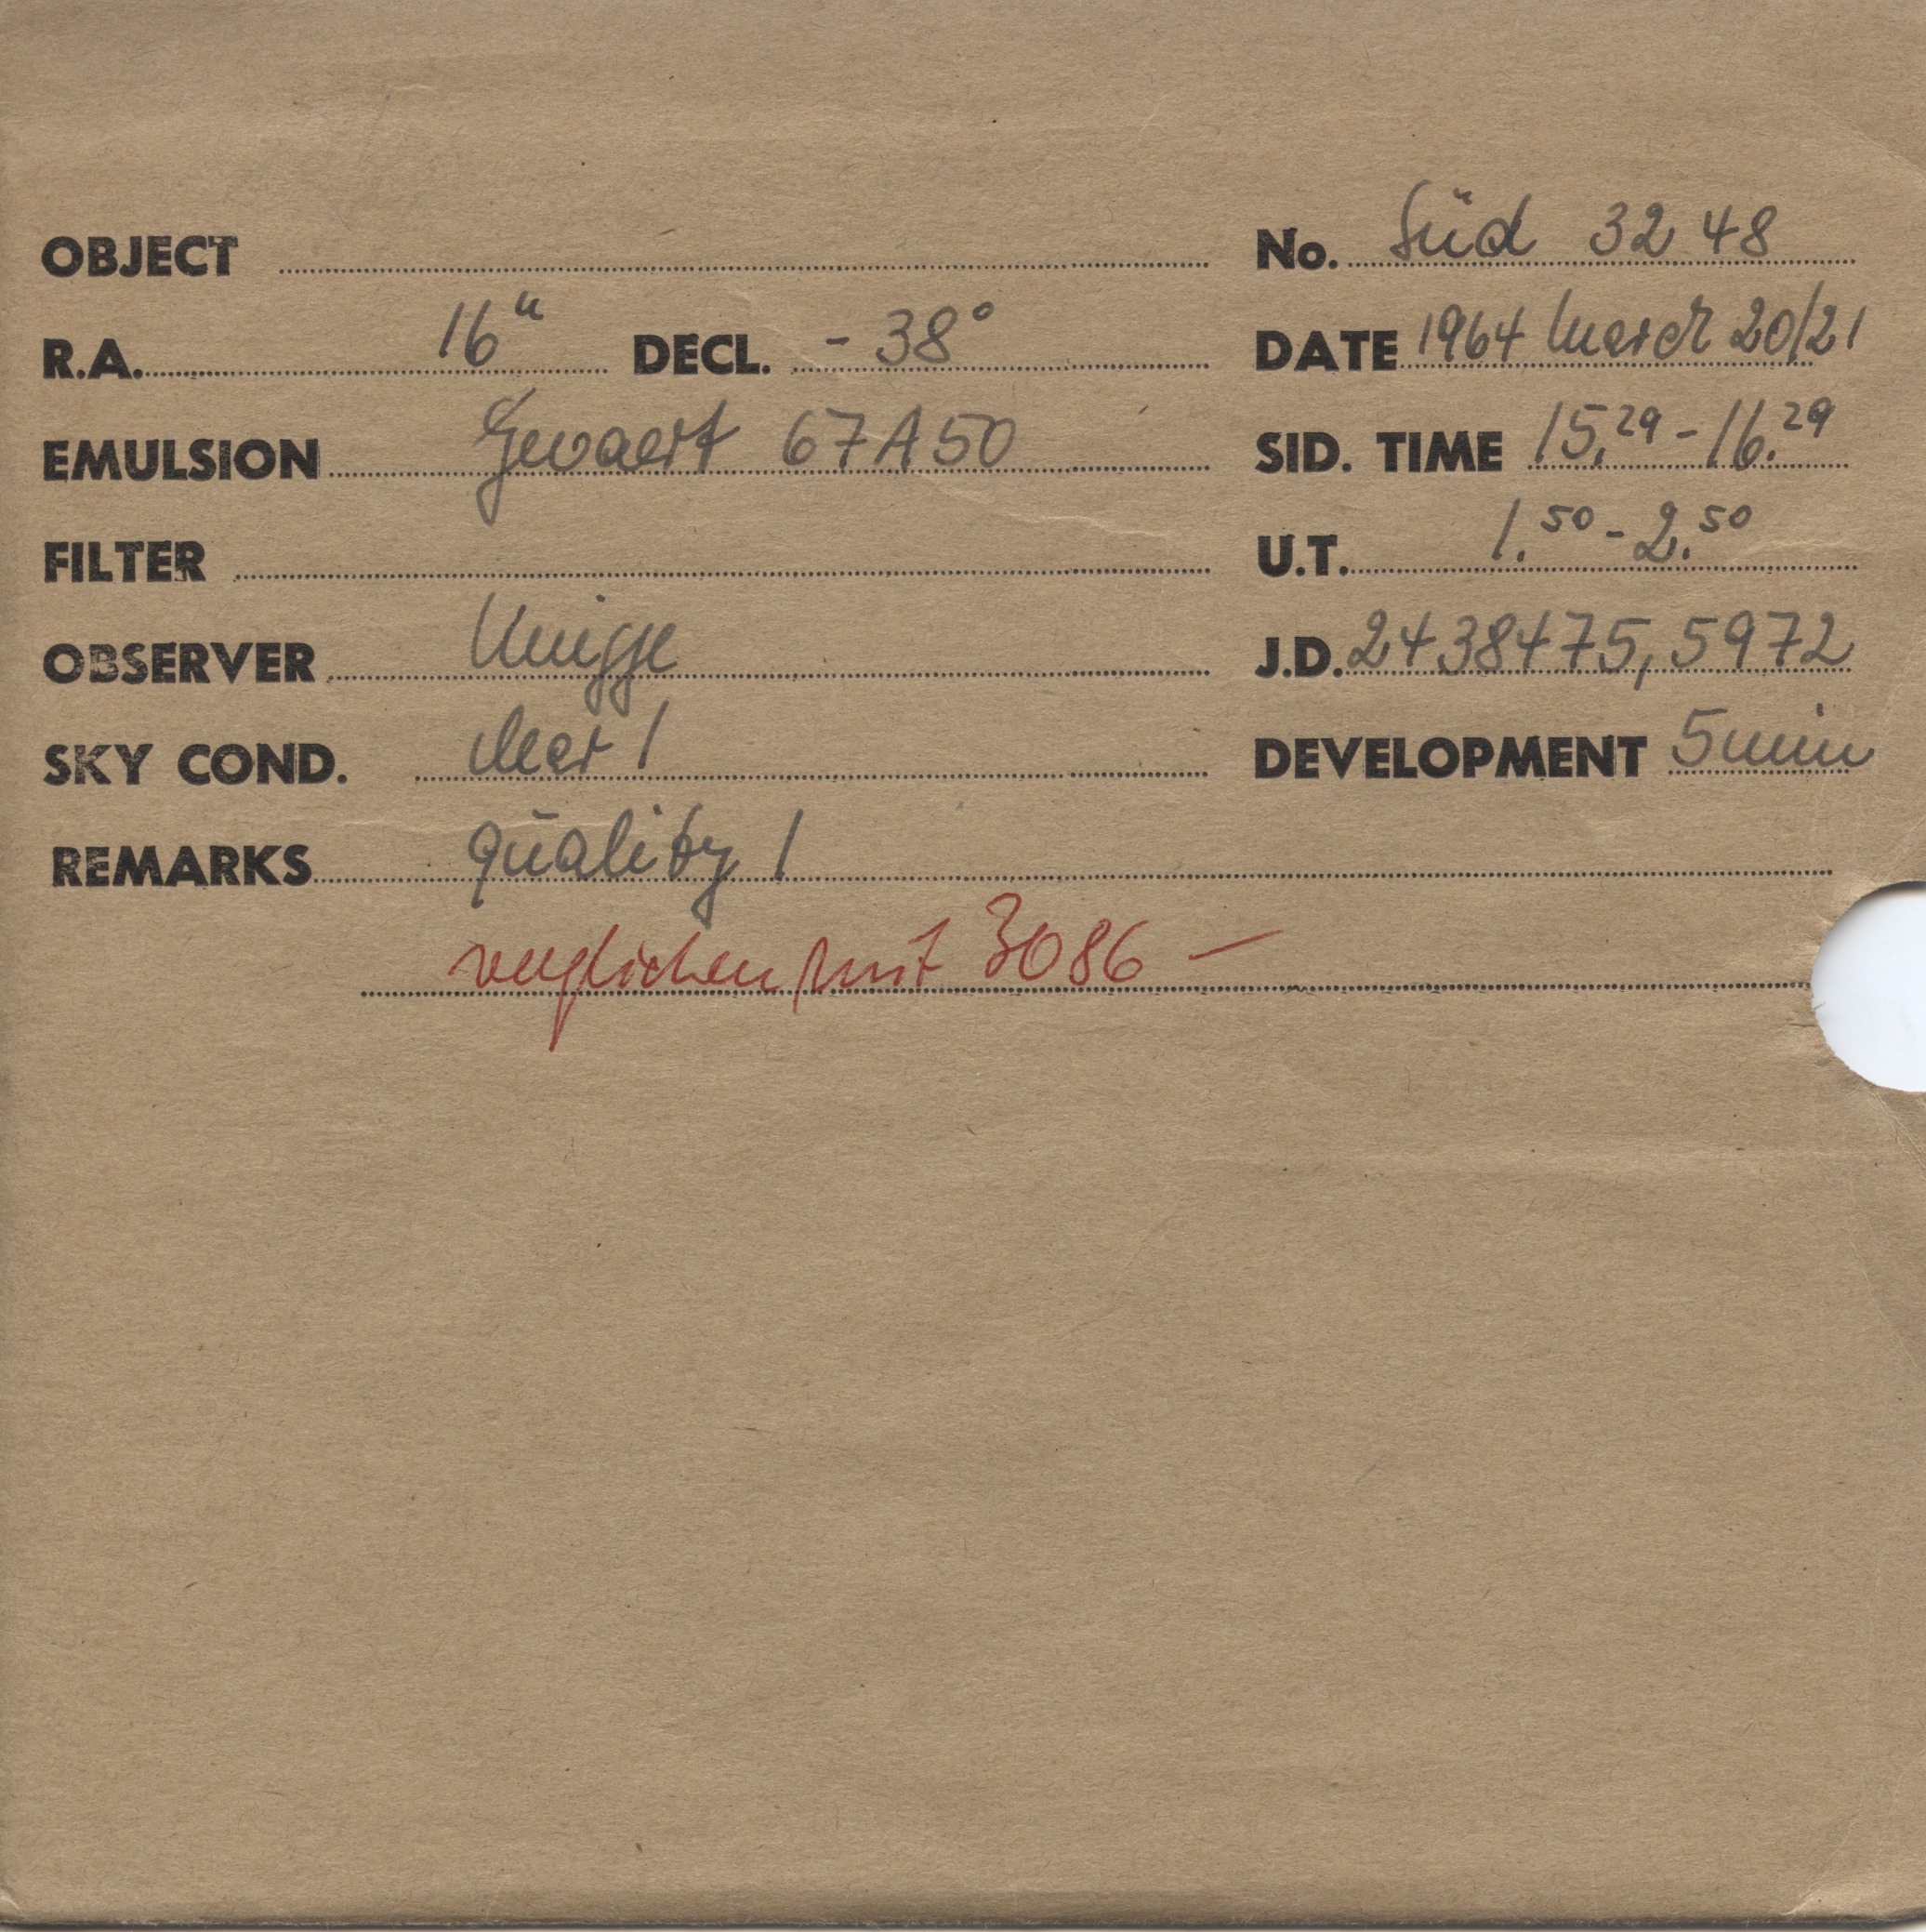 OBJECT No. Süd 3248
R.A. 16h DECL. -38°
DATE 1964 March 20/21
EMULSION Gevaert 67A50
SID. TIME 15.29 - 16.29
FILTER
U.T. 1.50 - 2.50
OBSERVER Knigge
J.D. 2438475,5972
SKY COND. clear 1
DEVELOPMENT 5 min
REMARKS quality 1
verglichen mit 3086 —